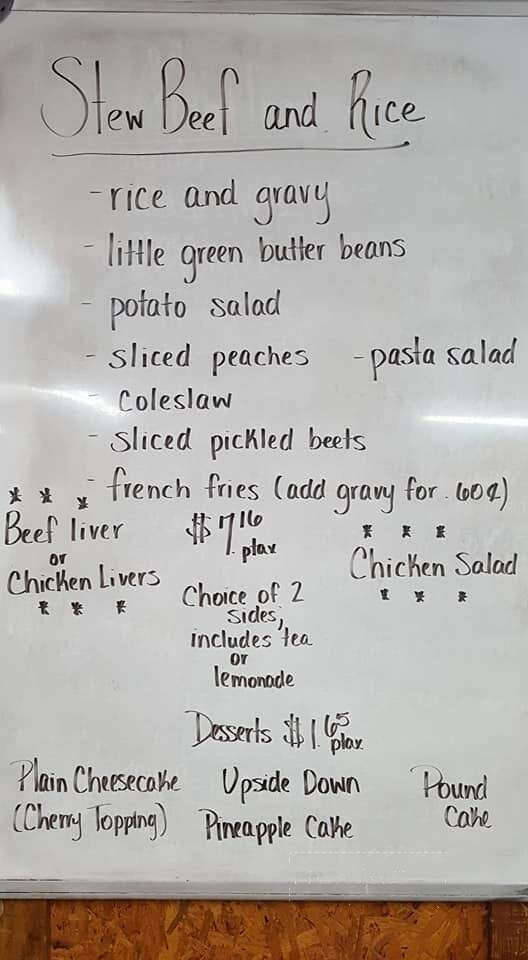 Stew Beef and Rice
- rice and gravy
- little green butter beans
- potato salad
- sliced peaches - pasta salad
- coleslaw
- sliced pickled beets
- french fries (add gravy for .60¢)
* * *
Beef liver
or
Chicken Livers
* * *
$7.16
plax
Choice of 2
sides,
includes tea
or
lemonade
* * *
Chicken Salad
* * *
Desserts $1.65
plax
Plain Cheesecake
(Cherry Topping)
Upside Down
Pineapple Cake
Pound
Cake